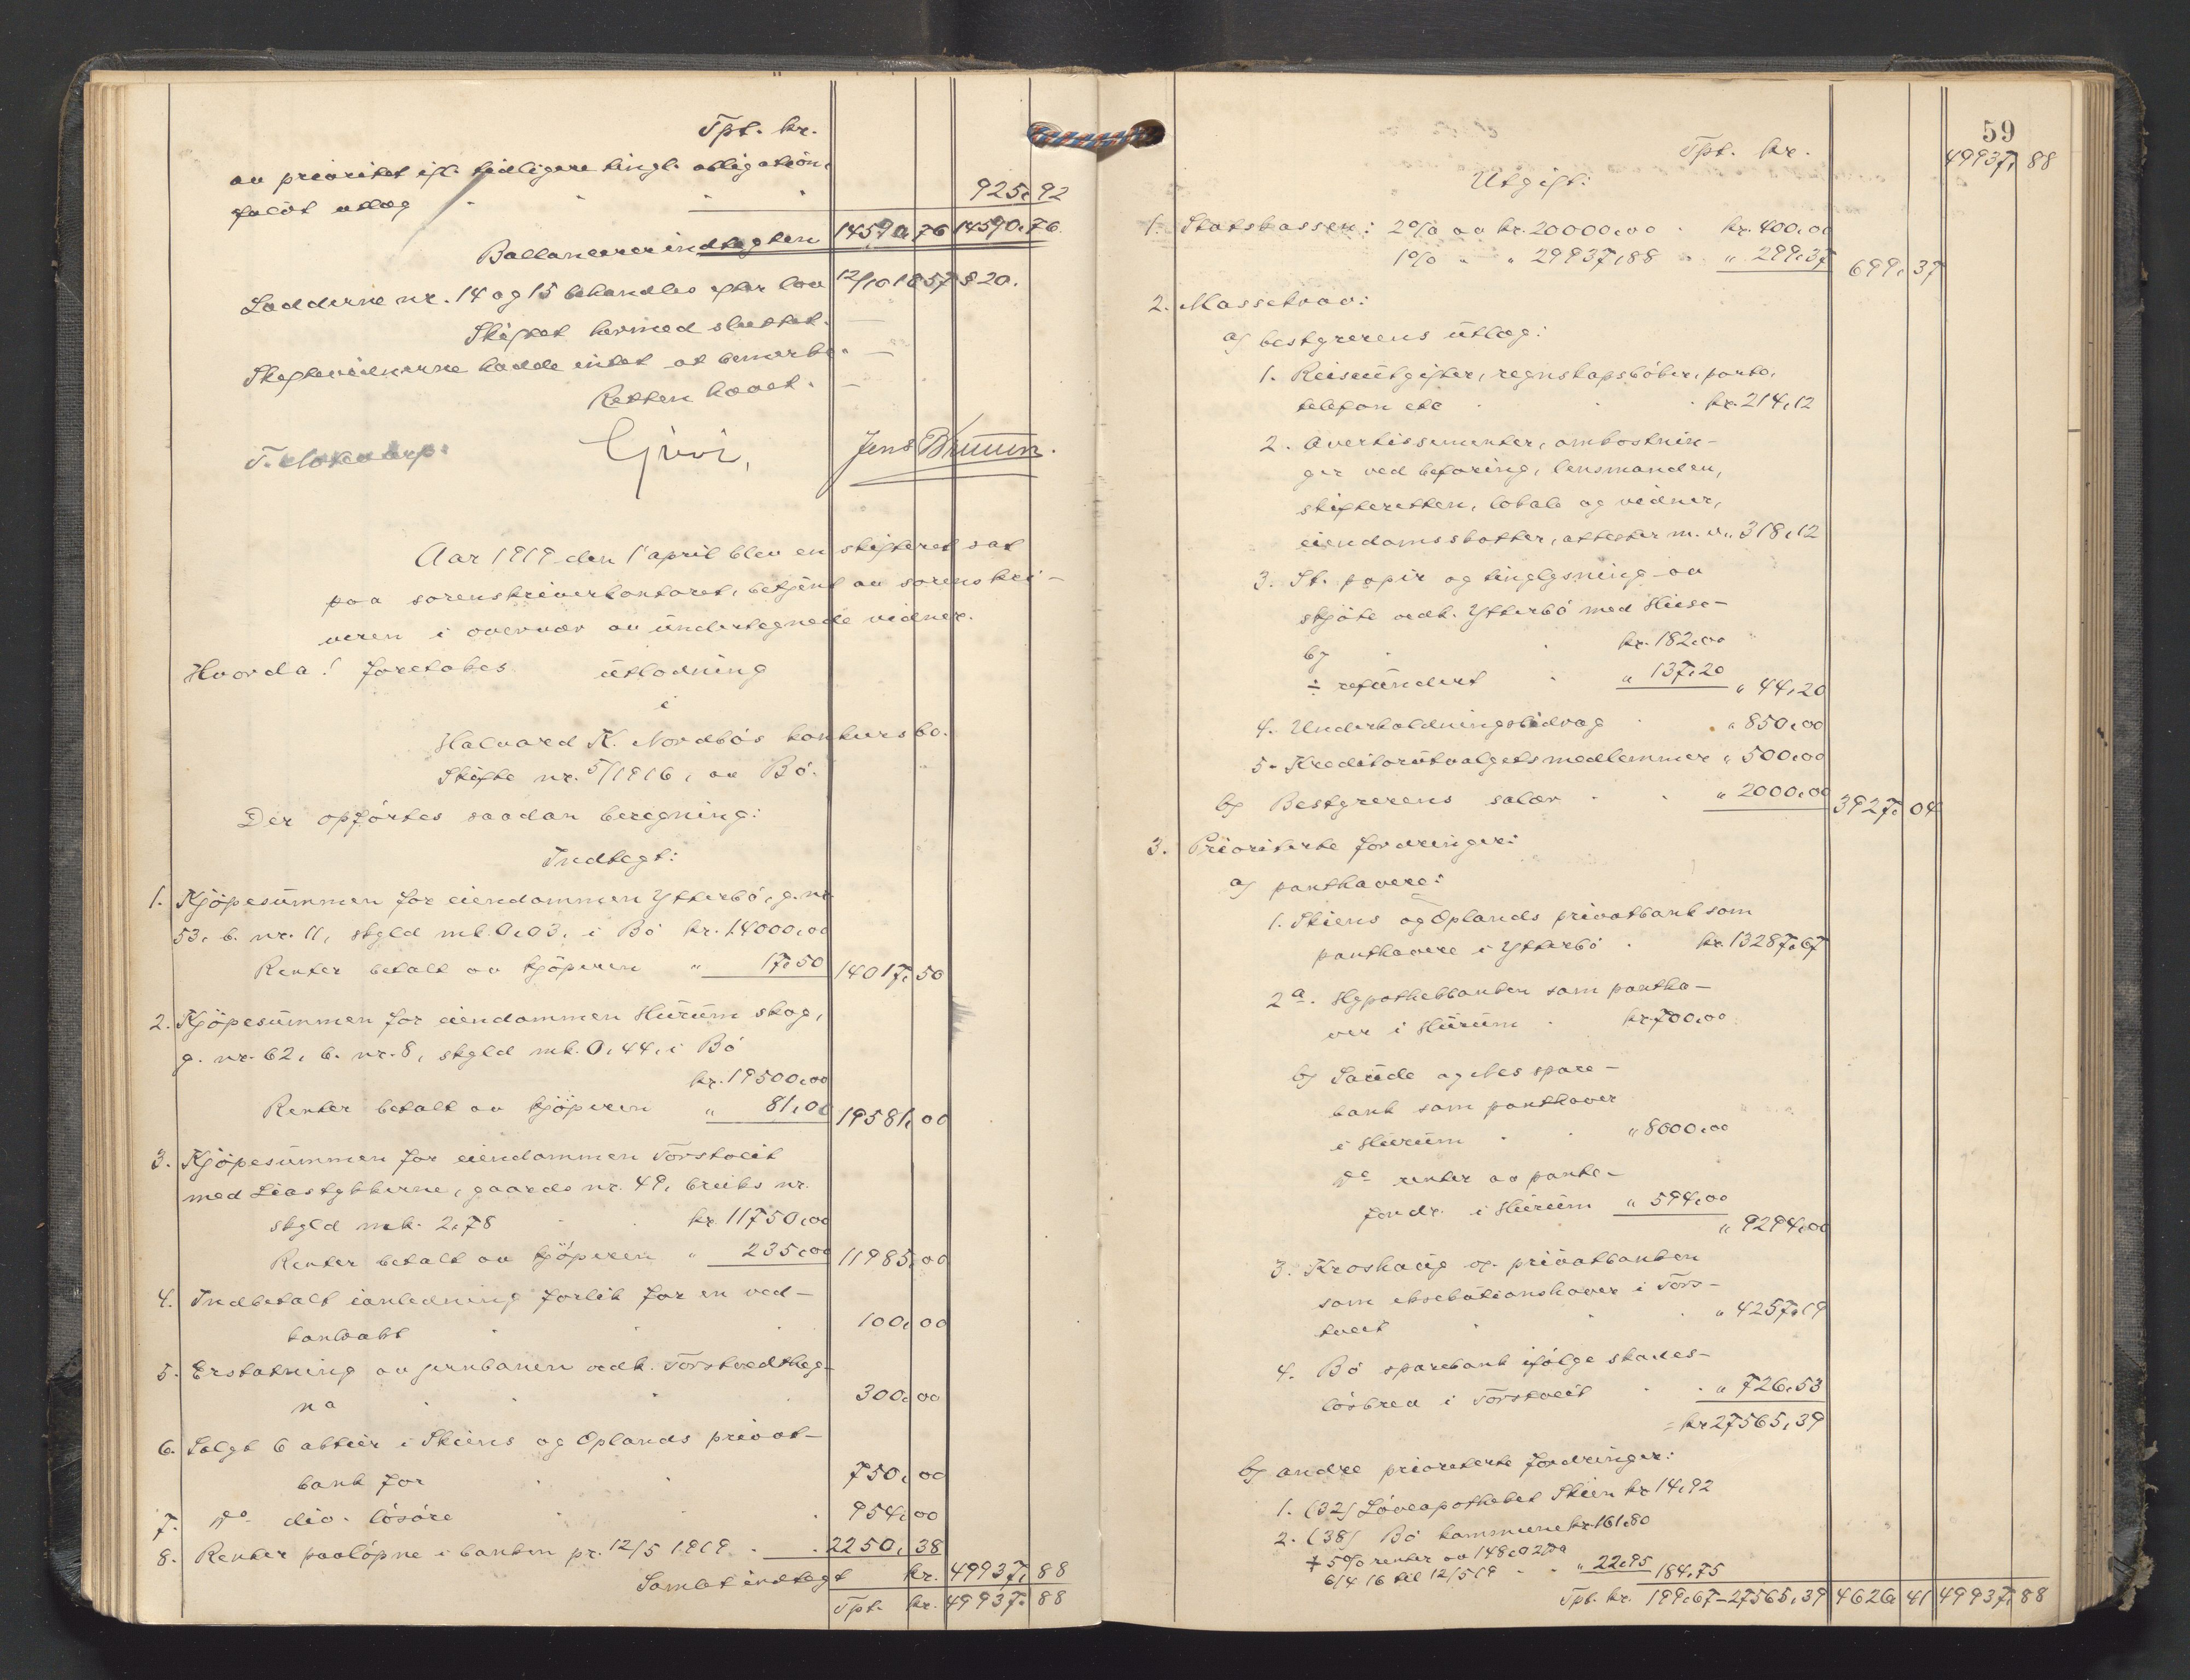 Tpt. kr.
av prioritet ifl. tidligere tingl. obligation,
falöt utlæg " " " 925,92
Ballancerer indtægten 14590,76 14590,76
Lodderne nr. 14 og 15 behandles efter lov 12/10 1857 § 20.
Skiftet hermed sluttet. —
Skiftevidnerne hadde intet at bemerke. —
Retten hævet. —
Jens Bruun.
Aar 1919 den 1 april blev en skifteret sat
paa sorenskriverkontoret, betjent av sorenskri-
veren i overvær av undertegnede vidner.
Hvorda! foretokes utlodning
i
Halvard K. Nordbös konkursbo.
Skifte nr. 5/1916, av Bö.
Der opförtes saadan beregning:
Indtægt:
1. Kjöpesummen for eiendommen Ytterbö, g. nr.
53, b. nr. 11, skyld mk. 0,03, i Bö kr. 14000,00
Renter betalt av kjöperen " 17,50 14017,50
2. Kjöpesummen for eiendommen Hurum skog,
g. nr. 62, b. nr. 8, skyld mk. 0,44, i Bö
kr. 19500,00
Renter betalt av kjöperen " 81,00 19581,00
3. Kjöpesummen for eiendommen Torstveit
med Liastykkerne, gaards nr. 49, bruks nr.
skyld mk. 2,78 kr. 11750,00
Renter betalt av kjöperen " 235,00 11985,00
4. Indbetalt ianledning forlik for en ved-
tanvakt 100,00
5. Erstatning av jernbanen vedk. Torstvedthag-
na 300,00
6. Solgt 6 aktier i Skiens og Oplands privat-
bank for 750,00
7. do div. lösöre 954,00
8. Renter paalöpne i banken pr. 12/5 1919 2250,38
Samlet indtægt kr. 49937,88
Tpt. kr. 49937,88
59
Tpt. kr. 49937,88
Utgift:
1. Statskassen: 2% av kr. 20000,00 kr. 400,00
1% " " 29937,88 " 299,37 699,37
2. Massekrav:
a) bestyrerens utlæg:
1. Reiseutgifter, regnskapsböker, porto,
telefon etc kr. 214,12
2. Avertissementer, omkostnin-
ger ved befaring, lensmanden,
skifteretten, lokale og vidner,
eiendomsskatter, attester m. v. " 318,12
3. St. papir og tinglysning av
skjöte vedk. Ytterbö med Huse-
by kr. 182,00
÷ refundert " 137,20 " 44,20
4. Underholdningsbidrag " 850,00
5. Kreditorutvalgets medlemmer " 500,00
b) Bestyrerens salær " 2000,00 3927,04
3. Prioriterte fordringer:
a) panthavere:
1. Skiens og Oplands privatbank som
panthavere i Ytterbö kr. 13287,67
2a. Hypothekbanken som pantha-
ver i Hurum kr. 700,00
b) Saude og Nes spare-
bank som panthaver
i Hurum " 8000,00
do renter av pante-
fordr. i Hurum " 594,00
" 9294,00
3. Kroshaug og privatbanken
som eksekutionshaver i Tors-
tveit " 4257,19
4. Bö sparebank ifölge skades-
lösbrev i Torstveit " 726,53
= kr 27565,39
b) andre prioriterte fordringer:
1. (32) Löveapotheket Skien kr 14,92
2. (38) Bö kommune kr. 161,80
+ 5% renter av 148,02 fra
6/4 16 til 12/5 19 " 22,95 184,75
Tpt. kr. 199,67 – 27565,39 4626,41 49937,88